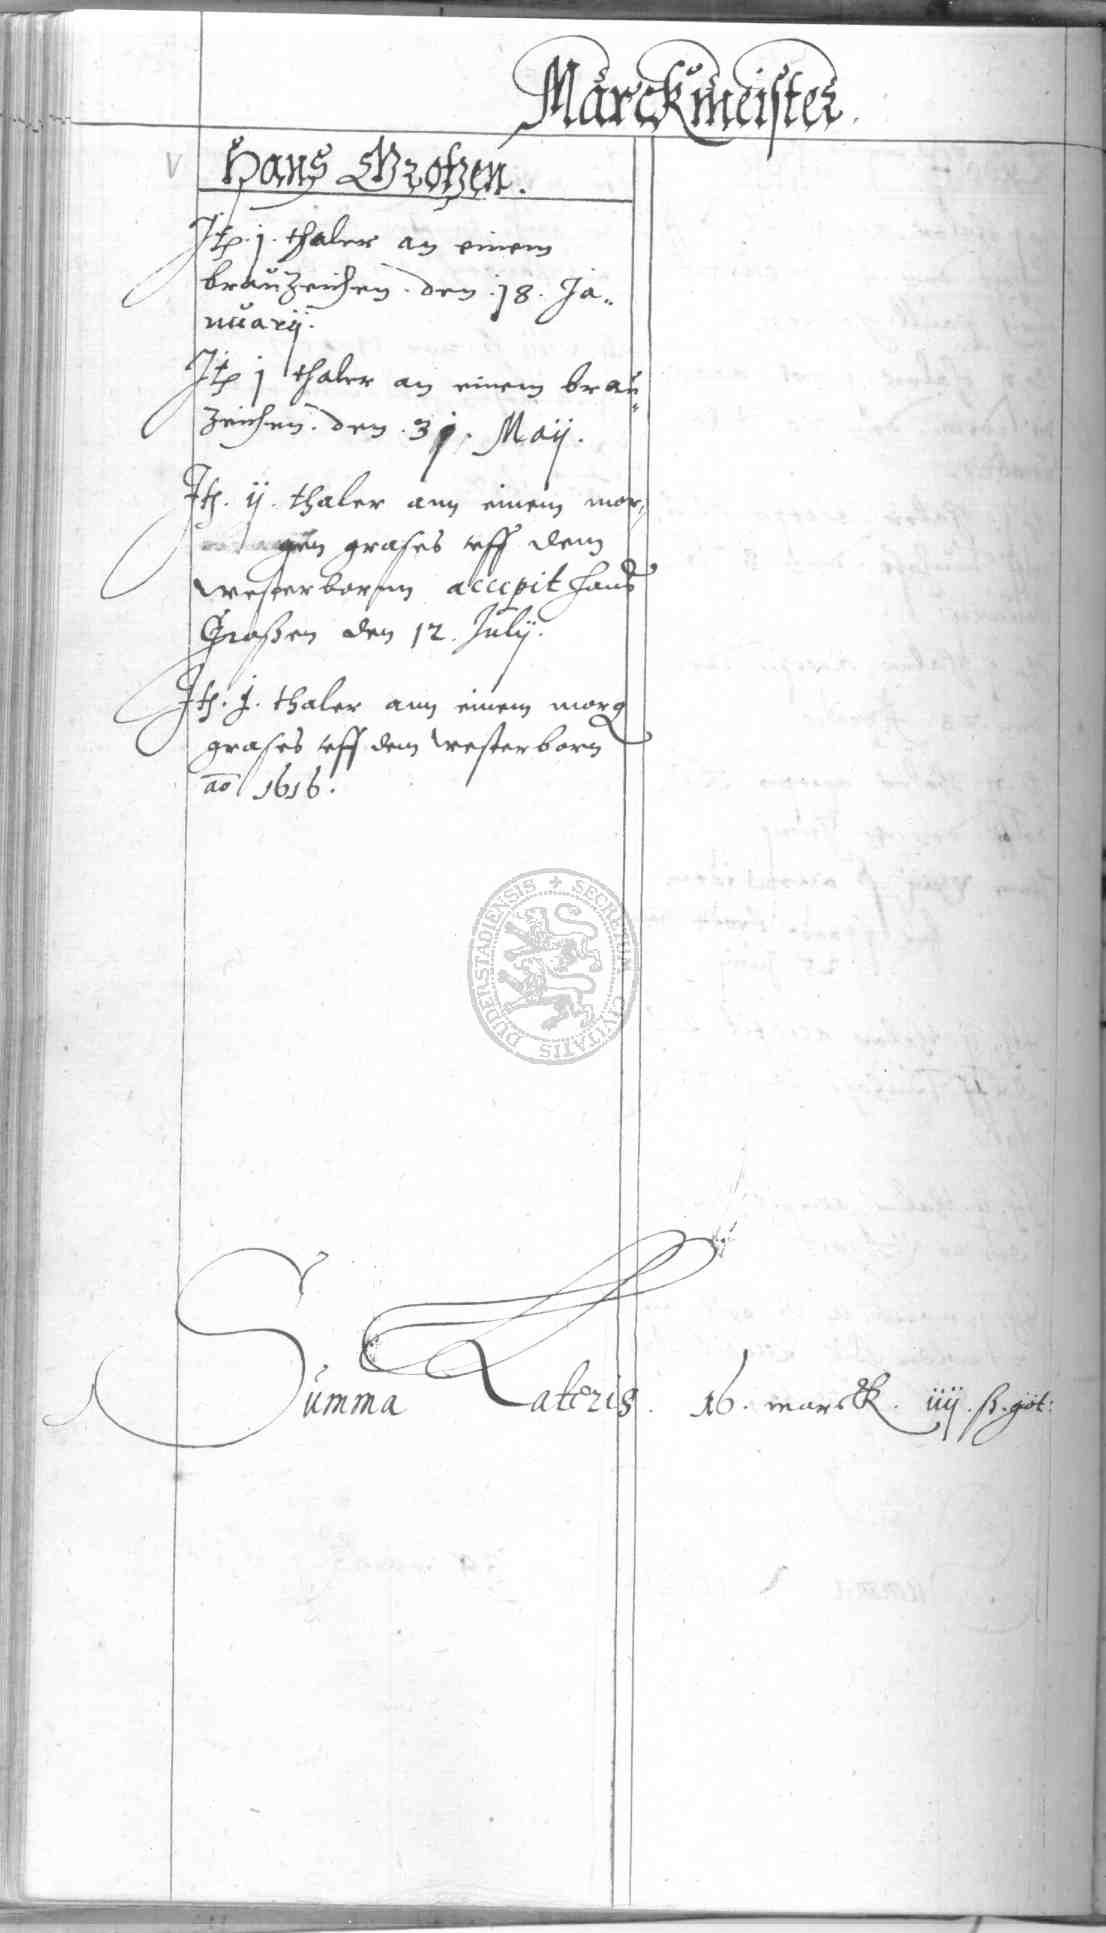 Marckmeister.
Hans Grotzen.
Itp. j. thaler an einem
brauzeichen. den .18. Ja„
nuarij.
Itp j thaler an einem brau„
zeichen. den .31. Maij.
Ith. ij. thaler ann einem mor„
gen grases uff dem
westerbornn accepit Hans
Großen den 12. Julij.
Ith. j. thaler ann einem morg
grases uff dem westerborn
ao 1616.
DUDERSTADIENSIS + SECRETUM CIVITATIS
Summa Lateris. 16. marck. iiij. ß. göt: